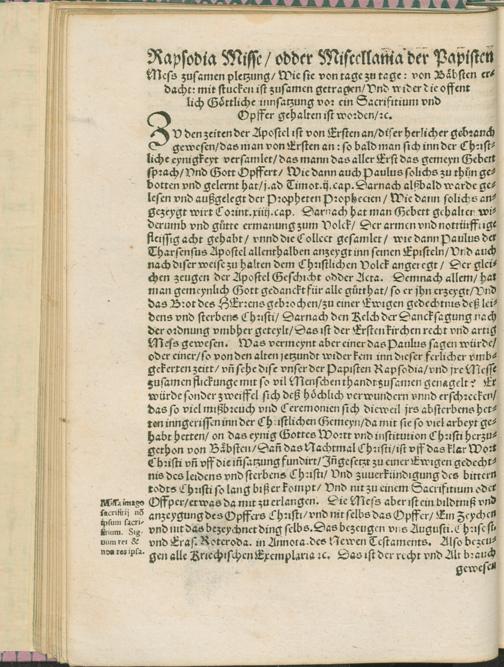 Rapsodia Misse/ odder Miscellania der Papisten
Mess zusamen pletzung/ Wie sie von tage zu tage: von Bäbsten er-
dacht: mit stucken ist zusamen getragen/ Vnd wider die offent
lich Göttliche innsatzung vor ein Sacrifitium vnd
Opffer gehalten ist worden/ ꝛc.
ZV den zeiten der Apostel ist von Ersten an/ diser herlicher gebrauch
gewesen/ das man von Ersten an: so bald man sich inn der Christ-
liche eynigkeyt versamlet/ das mann das aller Erst das gemeyn Gebett
sprach/ Vnd Gott Opffert/ Wie dann auch Paulus solichs zu thůn ge-
botten vnd gelernt hat/ j. ad Timot. ij. cap. Darnach alßbald warde ge-
lesen vnd außgelegt der Propheten Prophecien/ Wie dann solichs an-
gezeygt wirt Corint. xiiij. cap. Darnach hat man Gebett gehalten wi-
derumb vnd gůtte ermanung zum Volck/ Der armen vnd nottürfftige
fleissig acht gehabt/ vnnd die Collect gesamlet/ wie dann Paulus der
Tharsensus Apostel allenthalben anzeygt inn seinen Episteln/ Vnd auch
nach diser weise zu halten dem Christlichen Volck angeregt/ Der glei-
chen zeugen der Apostel Geschicht odder Acta. Demnach allem/ hat
man gemeynlich Gott gedanckt für alle gůtthat/ so er jhn erzeygt/ Vnd
das Brot des HErrens gebrochen/ zu einer Ewigen gedechtnis deß lei-
dens vnd sterbens Christi/ Darnach den Kelch der Dancksagung nach
der ordnung vmbher geteylt/ Das ist der Ersten kirchen recht vnd artig
Mess gewesen. Was vermeynt aber einer das Paulus sagen würde/
oder einer/ so von den alten jetzundt wider kem inn dieser ferlicher vmb-
gekerten zeitt/ vñ sehe dise vnser der Papisten Rapsodia/ vnd jre Messe
zusamen flickunge mit so vil Menschen thandt zusamen genagelt? Er
würde sonder zweiffel sich deß höchlich verwundern vnnd erschrecken/
das so viel mißbreuch vnd Ceremonien sich dieweil jrs absterbens het-
ten inngerissen inn der Christlichen Gemeyn/ da mit sie so viel arbeyt ge-
habt hetten/ on das eynig Gottes Wortt vnd institution Christi herzu-
gethon von Bäbsten/ Dañ das Nachtmal Christi/ ist vff das klar Wort
Christi vñ vff die inßatzung fundirt/ Jñgesetzt zu einer Ewigen gedecht-
nis des leidens vnd sterbens Christi/ Vnd zuuerkündigung des bittern
todts Christi so lang bißer kompt/ Vnd nit zu einem Sacrifitium odet
Opffer/ etwas da mit zu erlangen. Die Mess aber ist ein bildtnuß vnd
anzeygung des Opffers Christi/ vnd nit selbs das Opffer/ Ein Zeychen
vnd nit das bezeychnet ding selbs. Das bezeugen vns Augusti. Chrisosto
vnd Eras. Roteroda. in Annota. des Newen Testaments. Also bezeu-
gen alle Kriechischen Exemplaria ꝛc. Das ist der recht vnd Alt brauch
gewesen
Missa imago
sacrificij nõ
ipsum sacri-
ficium. Sig-
num rei &
non res ipsa.